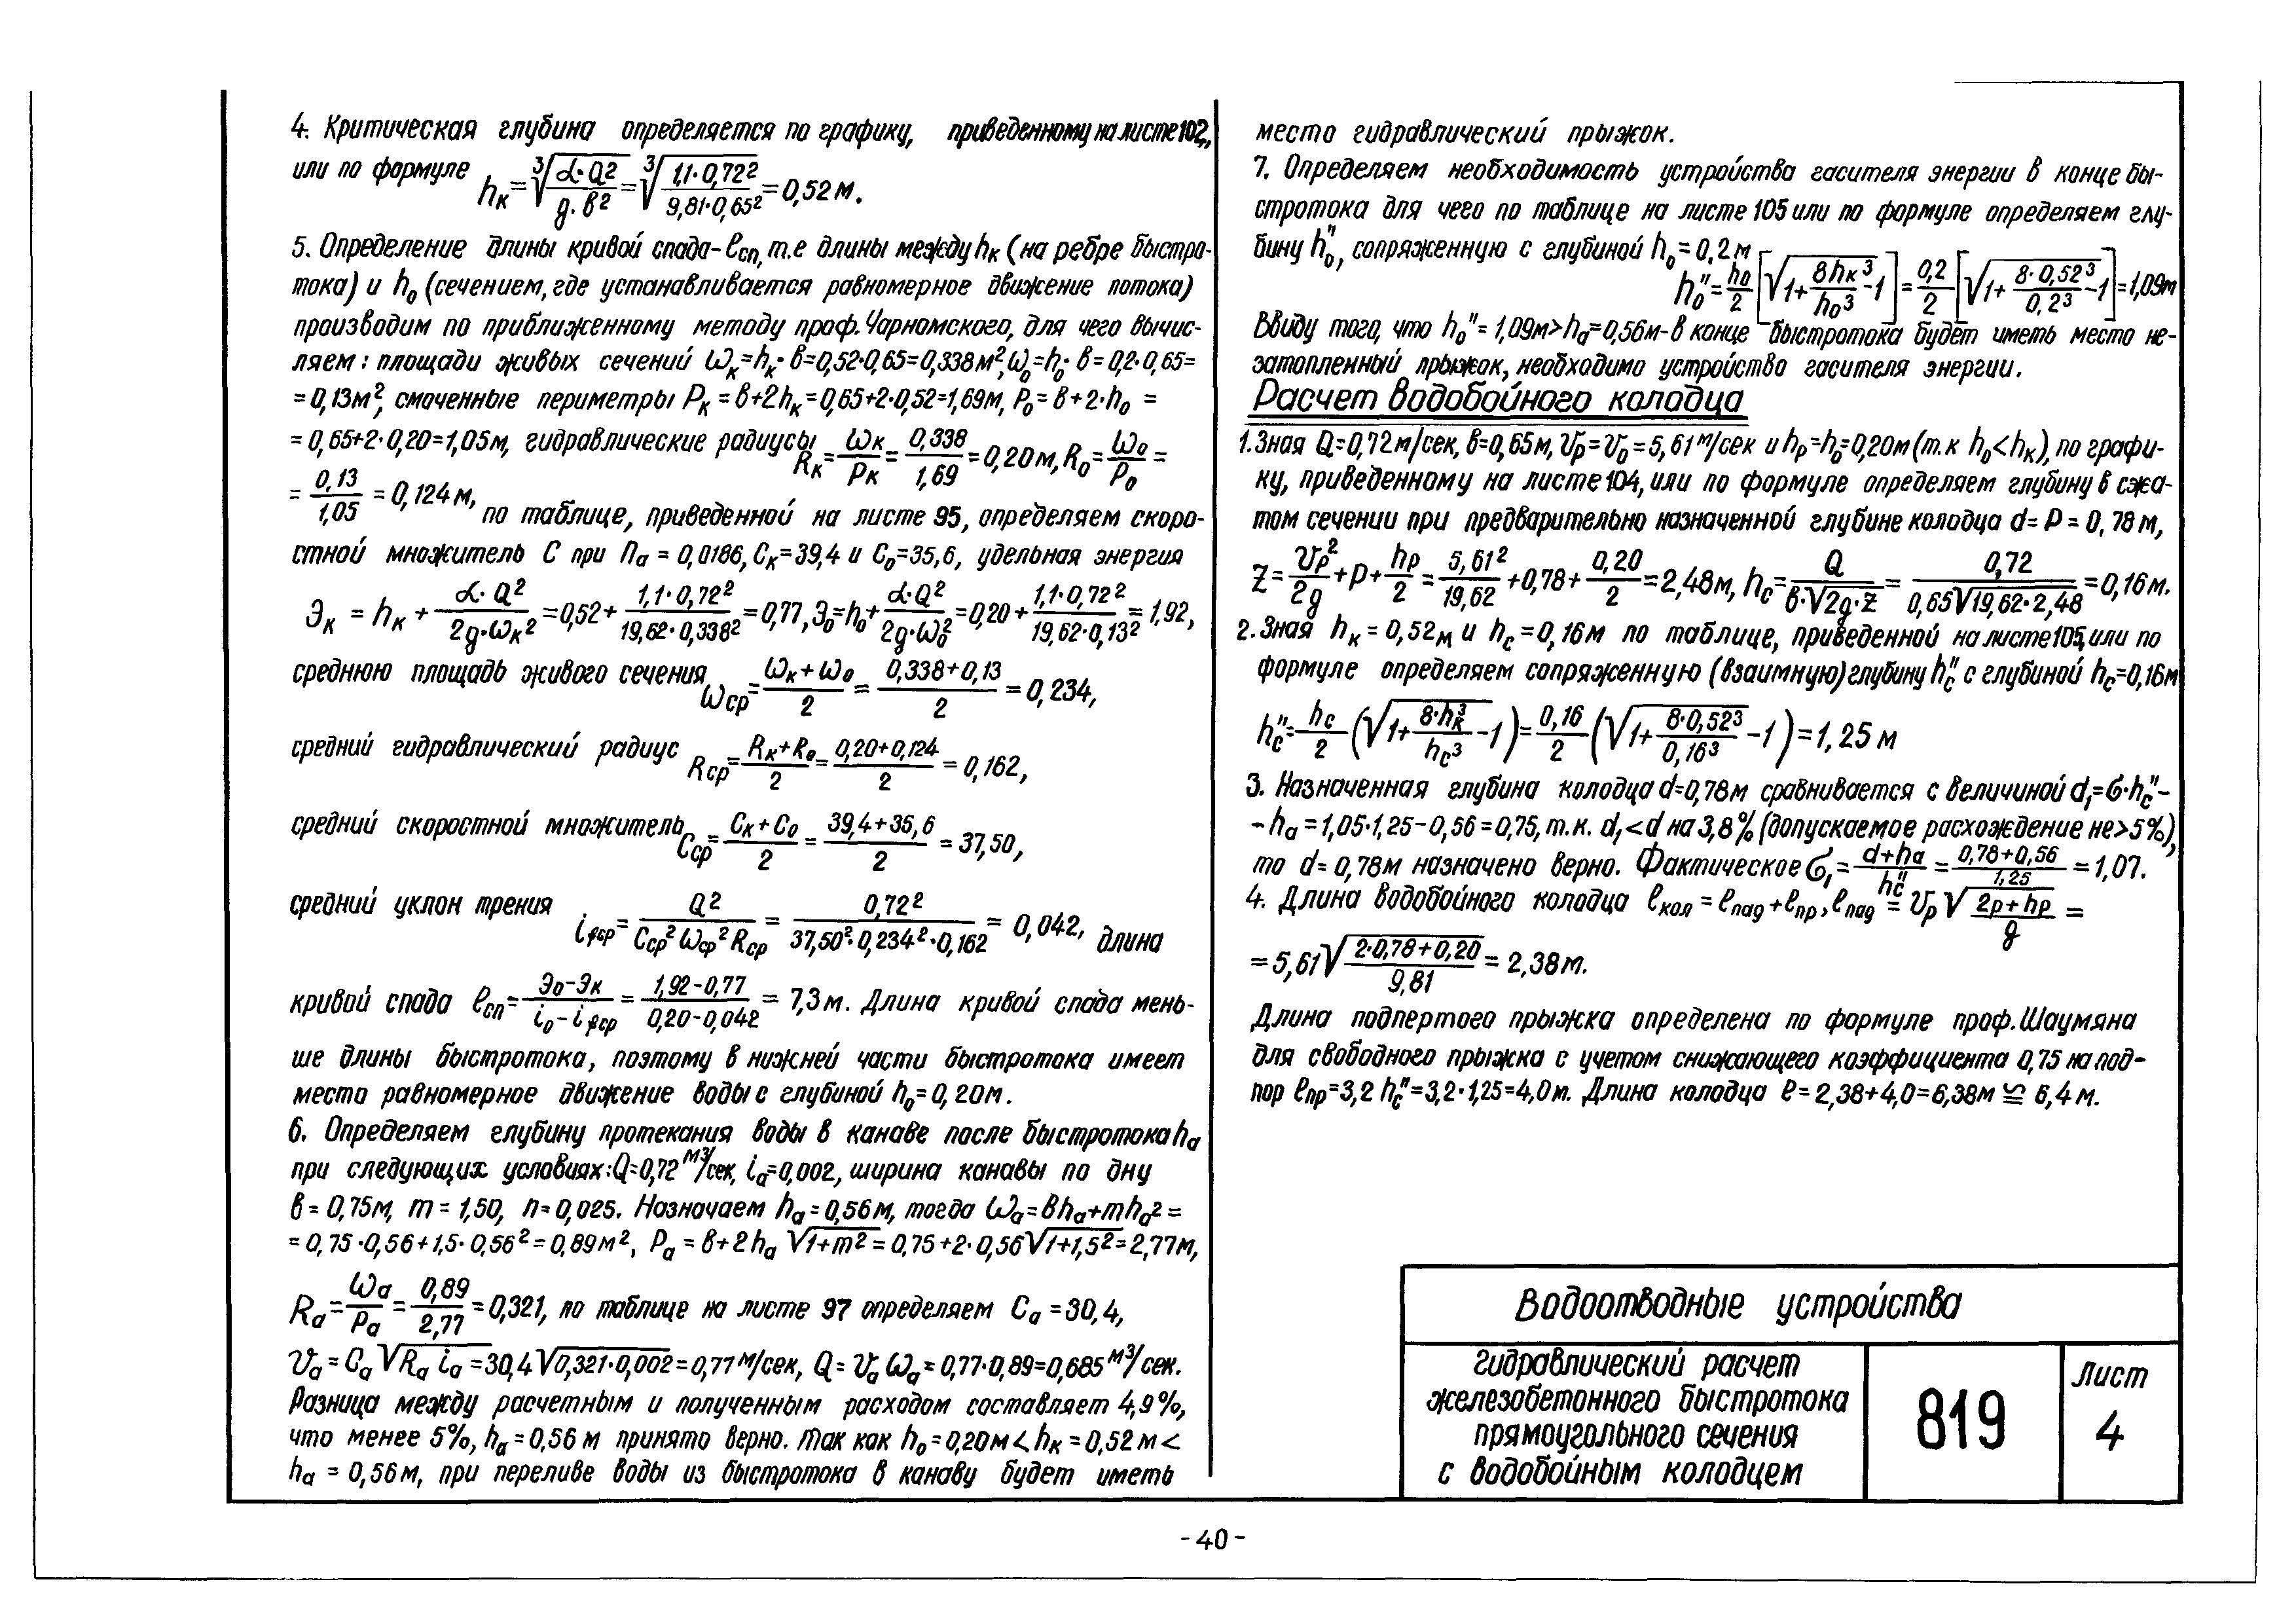 4. Критическая глубина определяется по графику, приведенному на листе 102,
или по формуле hк = ∛(α·Q²/g·в²) = ∛(1,1·0,72²/9,81·0,65²) = 0,52 м.
5. Определение длины кривой спада - ℓсп, т.е длины между hк (на ребре быстро-
тока) и h₀ (сечением, где устанавливается равномерное движение потока)
производим по приближенному методу проф. Чарномского, для чего вычис-
ляем: площади живых сечений ωк=hк·в=0,52·0,65=0,338м², ω₀=h₀·в=0,2·0,65=
=0,13м², смоченные периметры Рк=в+2hк=0,65+2·0,52=1,69м, Р₀=в+2·h₀ =
=0,65+2·0,20=1,05м, гидравлические радиусы Rк=ωк/Рк=0,338/1,69=0,20м, R₀=ω₀/Р₀=
=0,13/1,05=0,124м, по таблице, приведенной на листе 95, определяем скоро-
стной множитель С при Па = 0,0186, Ск=39,4 и С₀=35,6, удельная энергия
Эк = hк + α·Q²/2g·ωк² =0,52+ 1,1·0,72²/19,62·0,338² =0,77, Э₀=h₀+ α·Q²/2g·ω₀² =0,20+ 1,1·0,72²/19,62·0,13² = 1,92,
среднюю площадь живого сечения ωср= (ωк+ω₀)/2 = (0,338+0,13)/2 = 0,234,
средний гидравлический радиус Rср= (Rк+R₀)/2 = (0,20+0,124)/2 = 0,162,
средний скоростной множитель Сср= (Ск+С₀)/2 = (39,4+35,6)/2 = 37,50,
средний уклон трения ifср= Q²/Сср²ωср²Rср = 0,72²/37,50²·0,234²·0,162 = 0,042, длина
кривой спада ℓсп= (Э₀-Эк)/(i₀-ifср) = (1,92-0,77)/(0,20-0,042) = 7,3м. Длина кривой спада мень-
ше длины быстротока, поэтому в нижней части быстротока имеет
место равномерное движение воды с глубиной h₀=0,20м.
6. Определяем глубину протекания воды в канаве после быстротока hа
при следующих условиях: Q=0,72 м³/сек, iа=0,002, ширина канавы по дну
в = 0,75м, m = 1,50, n=0,025. Назначаем hа=0,56м, тогда ωа=вhа+mhа² =
=0,75·0,56+1,5·0,56²=0,89м², Ра = в+2hа √(1+m²) = 0,75+2·0,56√(1+1,5²)=2,77м,
Rа= ωа/Ра = 0,89/2,77 =0,321, по таблице на листе 97 определяем Са =30,4,
υа=Са√(Rа iа) =30,4√(0,321·0,002)=0,77 м/сек, Q= υа ωа=0,77·0,89=0,685 м³/сек.
Разница между расчетным и полученным расходом составляет 4,9%,
что менее 5%, hа=0,56 м принято верно. Так как h₀=0,20м<hк=0,52м<
hа = 0,56м, при переливе воды из быстротока в канаву будет иметь
место гидравлический прыжок.
7. Определяем необходимость устройства гасителя энергии в конце бы-
стротока для чего по таблице на листе 105 или по формуле определяем глу-
бину h₀", сопряженную с глубиной h₀=0,2м
h₀"= h₀/2 [√(1+ 8hк³/h₀³) -1] = 0,2/2 [√(1+ 8·0,52³/0,2³) -1] =1,09м
Ввиду того, что h₀"=1,09м>hа=0,56м-в конце быстротока будет иметь место не-
затопленный прыжок, необходимо устройство гасителя энергии.
Расчет водобойного колодца
1. Зная Q=0,72м/сек, в=0,65м, υр=υ₀=5,61м/сек и hр=h₀=0,20м (т.к h₀<hк), по графи-
ку, приведенному на листе 104, или по формуле определяем глубину в сжа-
том сечении при предварительно назначенной глубине колодца d=Р=0,78м,
Z= υр²/2g +Р+ hр/2 = 5,61²/19,62 +0,78+ 0,20/2 =2,48м, hс= Q/в·√(2g·Z) = 0,72/0,65√(19,62·2,48) =0,16м.
2. Зная hк=0,52м и hс=0,16м по таблице, приведенной на листе 105, или по
формуле определяем сопряженную (взаимную) глубину hс" с глубиной hс=0,16м
hс"= hс/2 (√(1+ 8·hк³/hс³) -1) = 0,16/2 (√(1+ 8·0,52³/0,16³) -1) = 1,25 м
3. Назначенная глубина колодца d=0,78м сравнивается с величиной d₁=б·hс"-
-hа=1,05·1,25-0,56=0,75, т.к. d₁<d на 3,8% (допускаемое расхождение не>5%),
то d=0,78м назначено верно. Фактическое б₁= (d+hа)/hс" = (0,78+0,56)/1,25 =1,07.
4. Длина водобойного колодца ℓкол = ℓпад+ℓпр, ℓпад = υр √((2р+hр)/g) =
=5,61√((2·0,78+0,20)/9,81) = 2,38м.
Длина подпертого прыжка определена по формуле проф. Шаумяна
для свободного прыжка с учетом снижающего коэффициента 0,75 на под-
пор ℓпр=3,2 hс"=3,2·1,25=4,0м. Длина колодца ℓ=2,38+4,0=6,38м ≌ 6,4м.
Водоотводные устройства
Гидравлический расчет
железобетонного быстротока
прямоугольного сечения
с водобойным колодцем
819
Лист
4
-40-